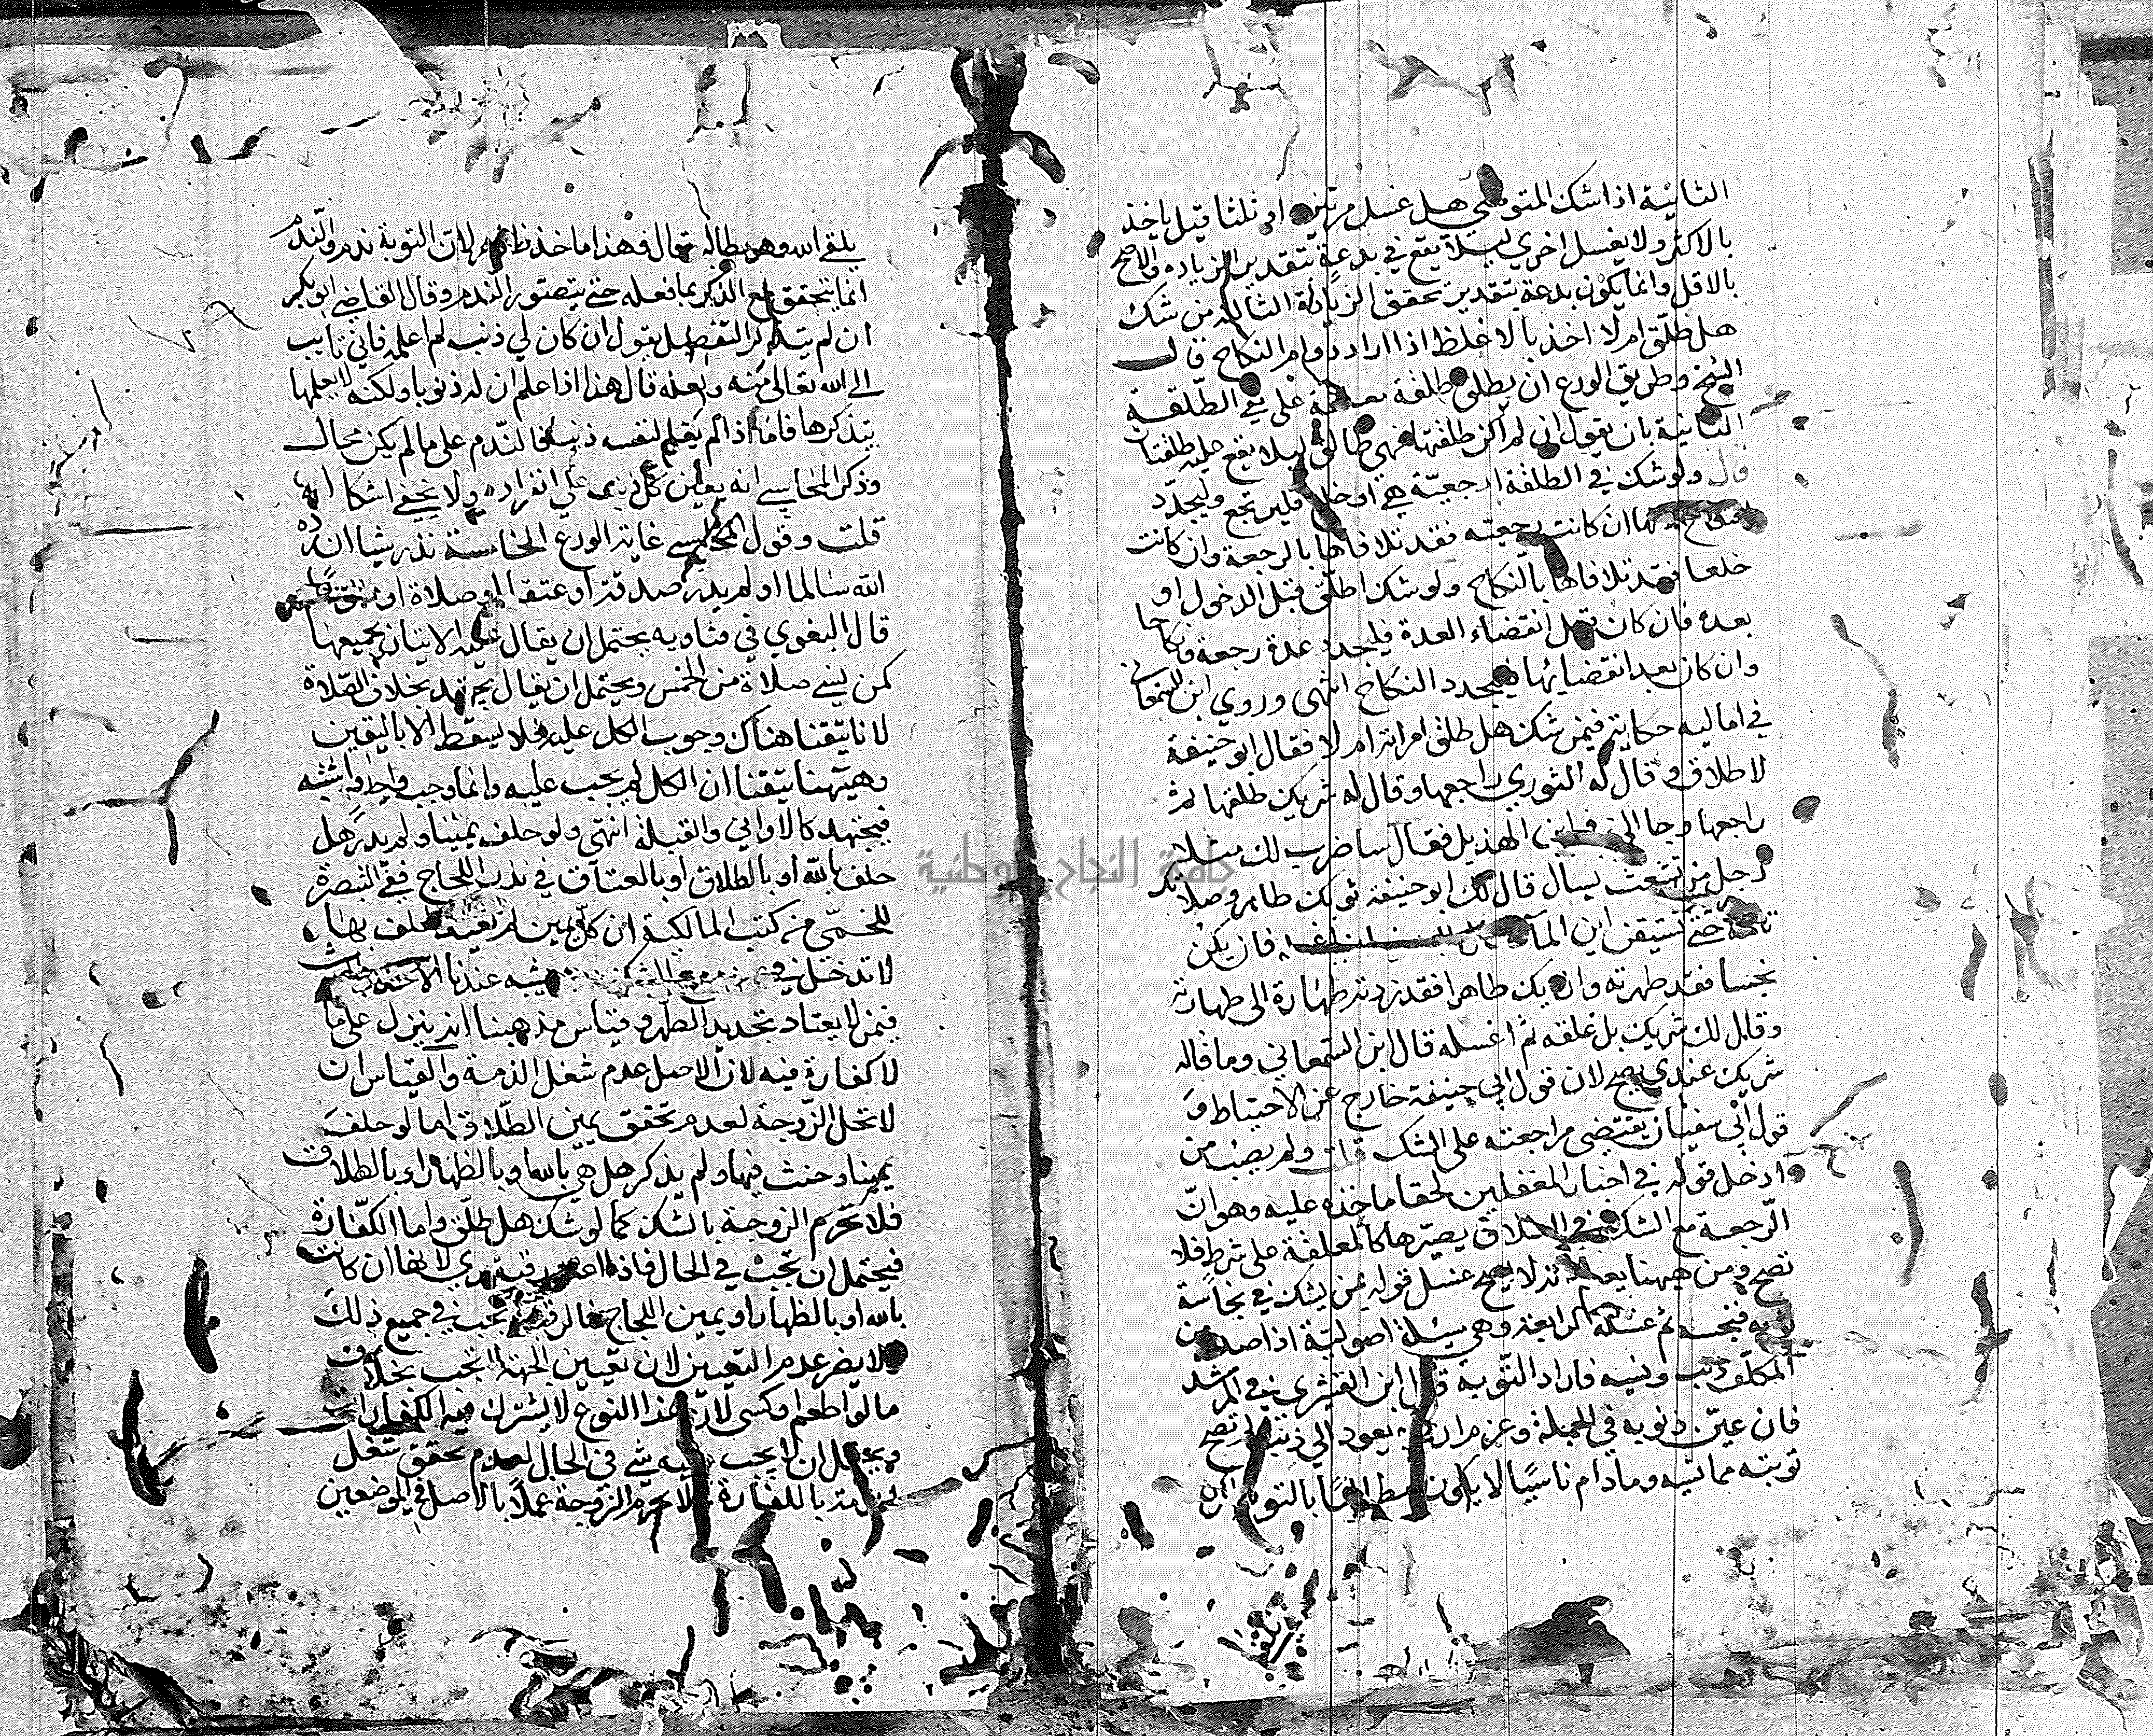 الثانية اذا شك المتوضي هل غسل مرتين او ثلثا قيل ياخذ
بالاكثر ولا يغسل اخري ليلا يقع في بدعة بتقدير الزياده والاصح
بالاقل وانما يكون بدعة بتقدير تحقق الزيادة الثالثة من شك
هل طلق ام لا اخذ بالاغلظ اذا اراد دوام النكاح قال
الشيخ وطريق الورع ان يطلق طلقة معلقة على نفي الطلقة
الثانية بان يقول ان لم اكن طلقتها فهي طالق ليلا يقع عليه طلقتان
قال ولو شك في الطلقة ارجعية هي او خلع فليرتجع وليجدد
ان كانت رجعية فقد تلافاها بالرجعة وان كانت
خلعا فقد تلافاها بالنكاح ولو شك اطلق قبل الدخول او
بعده فان كان قبل انقضاء العدة فليجدد عدة رجعة ونكاحا
وان كان بعد انقضايها فليجدد النكاح انتهى وروي ابن السمعاني
في اماليه حكاية فيمن شك هل طلق امراته ام لا فقال ابو حنيفة
لا طلاق وقال له الثوري راجعها وقال له شريك طلقها ثم
راجعها وجا الى زفر ابن الهذيل فقال ساضرب لك مثلا
رجل مر بمثعب يسال قال لك ابو حنيفة ثوبك طاهر وصلاتك
تامة حتى تستيقن ابن الما فان يكن
نجسا فقد طهرته وان يك طاهرا فقد زدته طهارة الى طهارته
وقال لك شريك بل عليه ثم اغسله قال ابن السمعاني وما قاله
شريك عندي يصح لان قول ابي حنيفة خارج عن الاحتياط و
قول ابي سفيان يقتضي مراجعته على الشك قلت ولم يصب من
ادخل قوله في اخبار المغفلين لخفا ماخذه عليه وهو ان
الرجعة مع الشك في الطلاق يصيرها كالمعلقة على شرط فلا
تصح ومن هيهنا يعلم انه لا يصح غسل قوله فيمن يشك في نجاسة
ثوبه فنجسه ثم غسله الرابعة وهي مسئلة اصولية اذا صدر من
المكلف ذنب ونسيه فاراد التوبة قال ابن القشيري في المرشد
فان عين ذنوبه في الجملة وعزم ان لا يعود الى ذنب لم تصح
توبته مما نسيه وما دام ناسيا لا يكون مطالبا بالتوبة
يلقى الله وهو يطالبه قال وهذا ماخذ ظاهر لان التوبة ندم والندم
انما يتحقق مع الذكر بما فعله حتى يتصور الندم وقال القاضي ابو بكر
ان لم يتذكر التفصيل يقول ان كان لي ذنب لم اعلمه فاني تايب
الى الله تعالى منه ولعله قال هذا اذا علم ان له ذنوبا ولكنه لا يعلمها
يتذكرها فاما اذا لم يعلم لنفسه ذنبا فالندم على ما لم يكن محال
وذكر المحاسبي انه يعين كل ذنب على انفراده ولا يخفى اشكاله
قلت وقول المحاسبي غاية الورع الخامسة نذر شيا ان رده
الله سالما او لم يدر صدقة او عتقا او صلاة او
قال البغوي في فتاويه يحتمل ان يقال عليه الاتيان بجميعها
كمن نسي صلاة من الخمس ويحتمل ان يقال يجتهد بخلاف الصلاة
لانا تيقنا هناك وجوب الكل عليه فلا يسقط الا باليقين
وهيهنا تيقنا ان الكل لم يجب عليه وانما وجب واحد واشتبه
فيجتهد كالاواني والقبلة انتهى ولو حلف يمينا ولم يدر هل
حلف بالله او بالطلاق او بالعتاق في نذر اللجاج ففي التبصرة
للخمي من كتب المالكية ان كل يمين لم يعتد الحلف بها
لا تدخل في يمينه مع الشك يشبه عندنا الاخذ
فيمن لا يعتاد تجديد الطهر وقياس مذهبنا ان ينزل على ما
لا كفارة فيه لان الاصل عدم شغل الذمة والقياس ان
لا تحل الزوجة لعدم تحقق يمين الطلاق اما لو حلف
يمينا وحنث فيها ولم يذكر هل هي بالله او بالظهار او بالطلاق
فلا تحرم الزوجة بالشك كما لو شك هل طلق واما الكفارة
فيحتمل ان تجب في الحال فاذا اعتق رقبة بري لانها ان كانت
بالله او بالظهار او يمين اللجاج فالرقبة تجب في جميع ذلك
ولا يضر عدم التعيين لان تعيين الجهة لا تجب بخلاف
ما لو اطعم او كسى لان هذا النوع لا يشترك فيه الكفارات
ويحتمل ان لا يجب عليه شي في الحال لعدم تحقق شغل
ذمته بالكفارة ولا تحرم الزوجة عملا بالاصل في الموضعين
يلقى
جامعة النجاح الوطنية